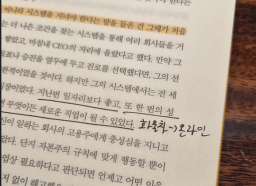 아니라 시스템을 지녀야 한다는 말을 들은 건 그때가 처음
는 더 나은 조건을 찾는 시스템을 통해 여러 회사들을 거
쌓았고, 마침내 CEO의 자리에 올랐다고 했다. 만약 그
목표나 승진을 염두에 두고 진로를 선택했다면, 그의 선
환적이었을 것이다. 하지만 그의 시스템에서는 전 세
장이었다. 지난번 일자리보다 좋고, 또 한 번의 성
이더라도 새로운 직업이 될 수 있었다.
→ 온라인
신이 일하는 회사의 고용주에게 충성심을 지니고
았다. 단지 자본주의 규칙에 맞게 행동할 뿐이
업상 필요하다고 판단되면 언제고 어떤